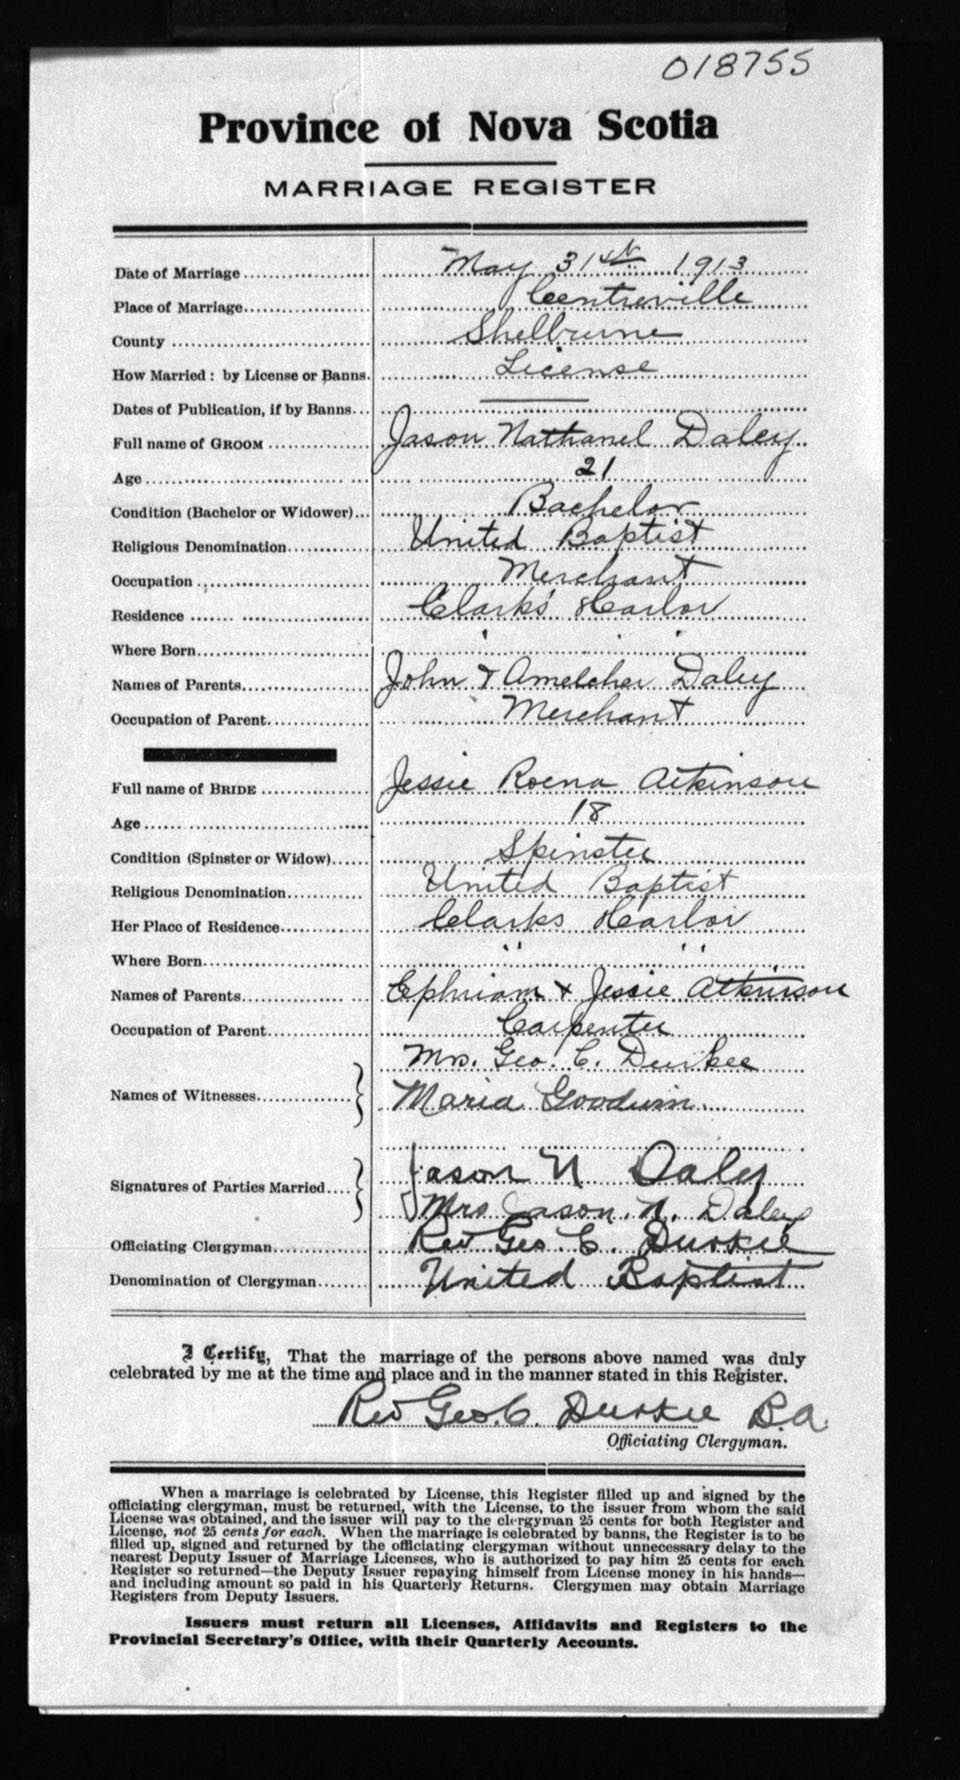 018755
Province of Nova Scotia
MARRIAGE REGISTER
Date of Marriage May 31st 1913
Place of Marriage Centreville
County Shelburne
How Married: by License or Banns. License
Dates of Publication, if by Banns
Full name of GROOM Jason Nathanel Daley
Age 21
Condition (Bachelor or Widower) Bachelor
Religious Denomination United Baptist
Occupation Merchant
Residence Clarks' Harbor
Where Born " "
Names of Parents John & Amelcher Daley
Occupation of Parent Merchant
Full name of BRIDE Jessie Roena Atkinson
Age 18
Condition (Spinster or Widow) Spinster
Religious Denomination United Baptist
Her Place of Residence Clarks Harbor
Where Born " "
Names of Parents Ephriam & Jessie Atkinson
Occupation of Parent Carpenter
Mrs. Geo. C. Durkee
Names of Witnesses Maria Goodwin
Jason N Daley
Signatures of Parties Married
Mrs Jason. N. Daley
Officiating Clergyman Rev Geo. C. Durkee
Denomination of Clergyman United Baptist
I Certify, That the marriage of the persons above named was duly
celebrated by me at the time and place and in the manner stated in this Register.
Rev Geo. C. Durkee B.A.
Officiating Clergyman.
When a marriage is celebrated by License, this Register filled up and signed by the
officiating clergyman, must be returned, with the License, to the issuer from whom the said
License was obtained, and the issuer will pay to the clergyman 25 cents for both Register and
License, not 25 cents for each. When the marriage is celebrated by banns, the Register is to be
filled up, signed and returned by the officiating clergyman without unnecessary delay to the
nearest Deputy Issuer of Marriage Licenses, who is authorized to pay him 25 cents for each
Register so returned—the Deputy Issuer repaying himself from License money in his hands—
and including amount so paid in his Quarterly Returns. Clergymen may obtain Marriage
Registers from Deputy Issuers.
Issuers must return all Licenses, Affidavits and Registers to the
Provincial Secretary's Office, with their Quarterly Accounts.